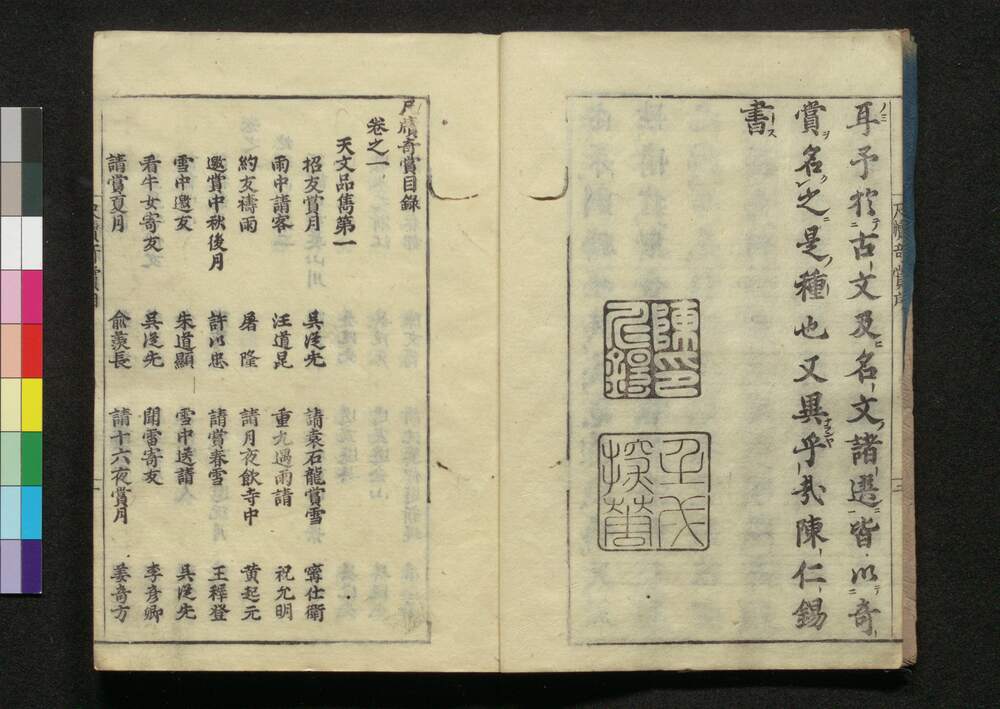 耳予於古文及名文諸選皆以奇
賞名之是種也又異乎哉陳仁錫
書
尺牘奇賞目錄
卷之一
天文品雋第一
招友賞月 吳從先 請袁石龍賞雪 甯仕衛
雨中請客 汪道昆 重九遇雨請 祝允明
約友禱雨 屠隆 請月夜飲寺中 黃起元
邀賞中秋後月 許以忠 請賞春雪 王穉登
雪中邀友 朱道顯 雪中送請人 吳從先
看牛女寄友 吳從先 聞雷寄友 李彥卿
請賞夏月 俞羨長 請十六夜賞月 姜奇方